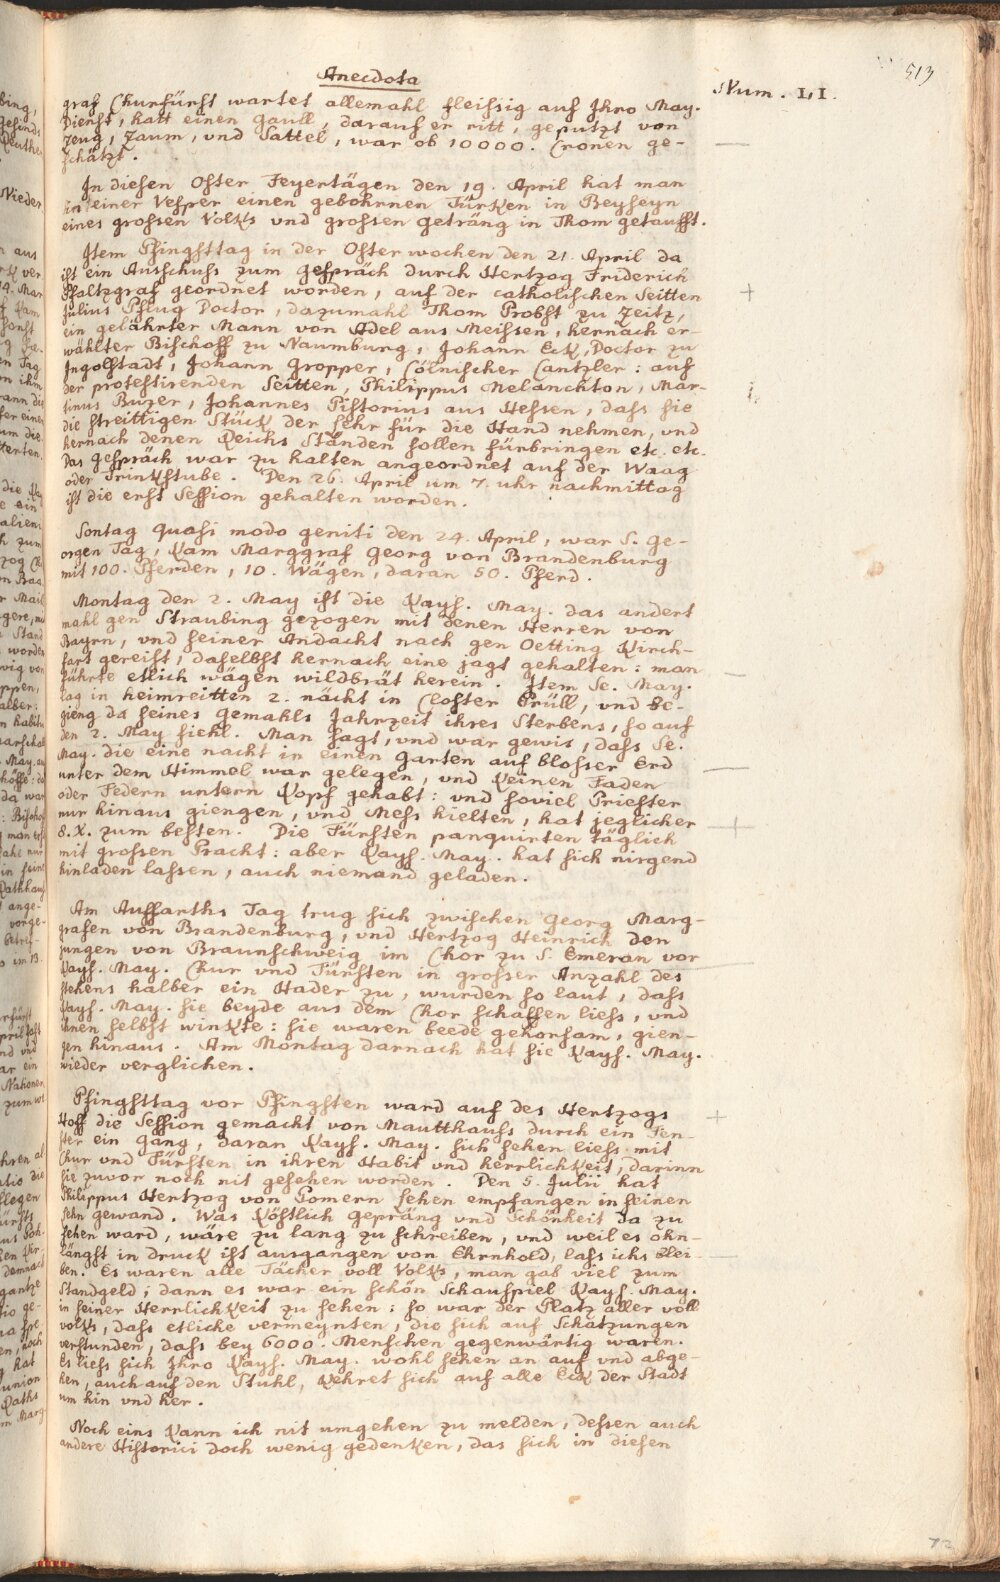 513
Anecdota
Num. LI.
graf Churfürst wartet allemahl fleissig auf Ihro May.
Dienst, hatt einen Gaull, darauf er ritt, geputzt von
Zeug, Zaum, vnd Sattel, war ob 10000. Cronen ge-
schätzt.
In diesen Oster Feyertägen den 19. April hat man
in einer Vesper einen gebohrnen Türken in Beyseyn
eines grossen Volks vnd grossen geträng in Thom getaufft.
Item Pfingsttag in der Osterwochen den 21. April da
ist ein Ausschuss zum gespräch durch Hertzog Friderich
Pfaltzgraf geordnet worden, auf der catholischen Seitten
Julius Pflug Doctor, dazumahl Thom Probst zu Zeitz,
ein gelährter Mann von Adel aus Meissen, hernach er-
wählter Bischoff zu Naumburg, Johann Eck, Doctor zu
Ingolstadt, Johann Gropper, Cölnischer Cantzler: auf
der protestirenden Seitten, Philippus Melanckton, Mar-
tinus Buzer, Johannes Pistorius aus Hessen, dass sie
die streittigen Stück der Lehr für die Hand nehmen, vnd
hernach denen Reichs Ständen sollen fürbringen etc. etc.
Das gespräch war zu halten angeordnet auf der Waag
oder Trinkstube. Den 26. April um 7. uhr nachmittag
ist die erst Session gehalten worden.
Sontag quasi modo geniti den 24. April, war S. Ge-
orgen Tag, kam Marggraf Georg von Brandenburg
mit 100. Pferden, 10. Wägen, daran 50. Pferd.
Montag den 2. May ist die Kays. May. das andert
mahl gen Straubing gezogen mit denen Herren von
Bayrn, vnd seiner Andacht nach gen Oetting Kirch-
fart gereist, daselbst hernach eine jagt gehalten: man
führte etlich wägen wildbrät herein. Item Se. May.
lag in heimreitten 2. nächt in Closter Prüll, vnd be-
gieng da seines Gemahls Jahrzeit ihres Sterbens, so auf
den 2. May fiehl. Man sagt, vnd war gewis, dass Se.
May. die eine nacht in einen Garten auf blosser Erd
unter dem Himmel war gelegen, vnd keinen Faden
oder Federn untern Kopf gehabt: vnd soviel Priester
nur hinaus giengen, vnd Mess hielten, hat jeglicher
8. X. zum besten. Die Fürsten panquirten täglich
mit grossen Pracht: aber Kays. May. hat sich nirgend
hinladen lassen, auch niemand geladen.
Am Auffarths Tag trug sich zwischen Georg Marg-
grafen von Brandenburg, vnd Hertzog Heinrich den
jungen von Braunschweig im Chor zu S. Emeran vor
Kays. May. Chur vnd Fürsten in grosser Anzahl des
stehens halber ein Hader zu, wurden so laut, dass
Kays. May. sie beyde aus dem Chor schaffen liess, vnd
ihnen selbst winkte: sie waren beede gehorsam, gien-
gen hinaus. Am Montag darnach hat sie Kays. May.
wieder verglichen.
Pfingsttag vor Pfingsten ward auf des Hertzogs
Hoff die Session gemacht von Mautthauss durch ein Fen-
ster ein Gang, daran Kays. May. sich sehen liess mit
Chur vnd Fürsten in ihren Habit vnd herrlichkeit, darinn
sie zuvor noch nit gesehen worden. Den 5. Julii hat
Philippus Hertzog von Pomern Lehen empfangen in seinen
Lehn gewand. Was köstlich gepräng vnd Schönheit da zu
sehen ward, wäre zu lang zu schreiben, vnd weil es ohn-
längst in druck ist ausgangen von Ehrnhold, lass ichs blei-
ben. Es waren alle Tächer voll Volks, man gab viel zum
Standgeld, dann es war ein schön Schauspiel Kays. May.
in seiner Herrlichkeit zu sehen: so war der Platz aller voll
volks, dass etliche vermeynten, die sich auf Schatzungen
verstunden, dass bey 6000. Menschen gegenwärtig waren.
Es liess sich Ihro Kays. May. wohl sehen an auf vnd abge-
hen, auch auf den Stuhl, kehret sich auf alle Eck der Stadt
um hin vnd her.
Noch eins kann ich nit umgehen zu melden, dessen auch
andere Historici doch wenig gedenken, das sich in diesen
72